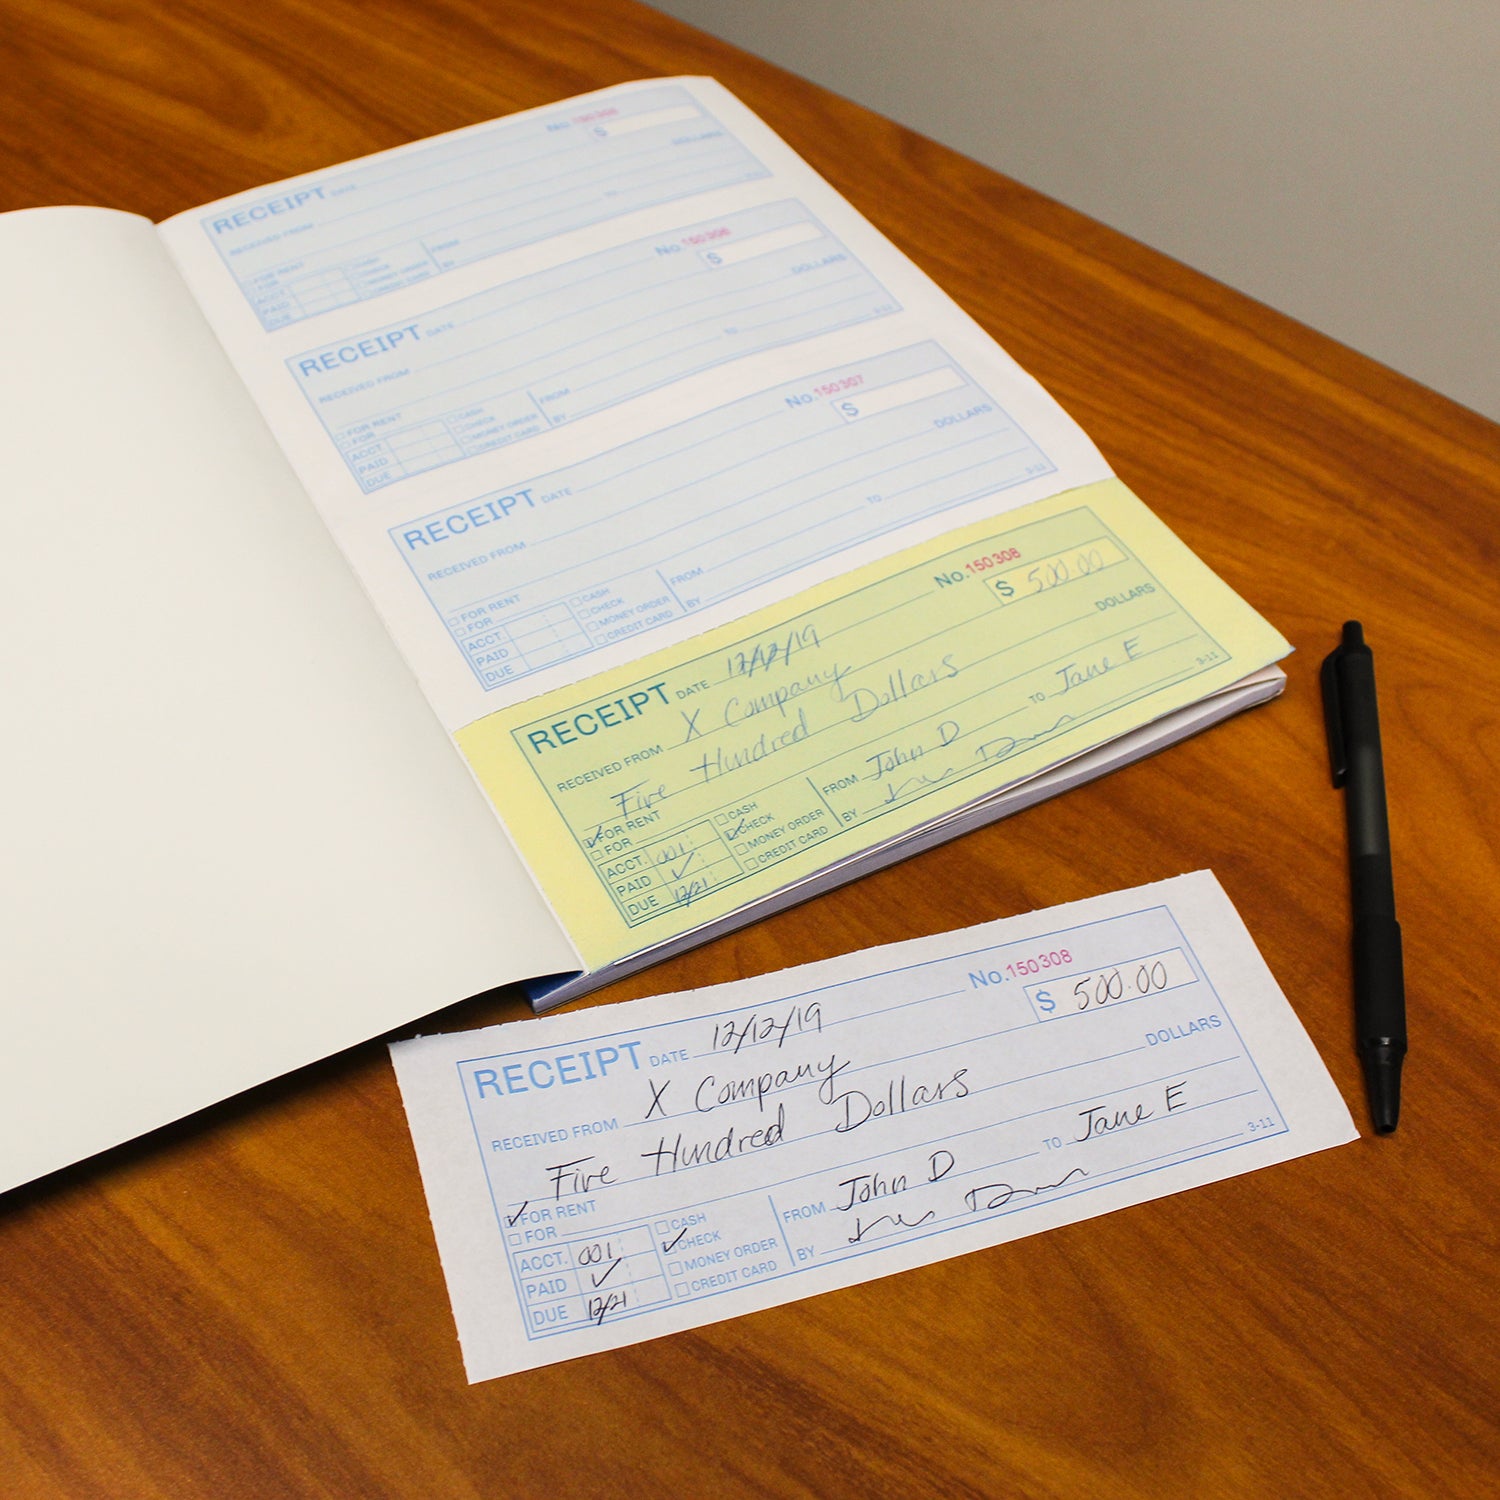 No. 150308
$
RECEIPT DATE
DOLLARS
RECEIVED FROM
TO
3-11
FOR RENT
FOR
CASH
ACCT.
CHECK
FROM
PAID
MONEY ORDER
BY
DUE
CREDIT CARD
No. 150306
$
RECEIPT DATE
DOLLARS
RECEIVED FROM
TO
3-11
FOR RENT
FOR
CASH
ACCT.
CHECK
FROM
PAID
MONEY ORDER
BY
DUE
CREDIT CARD
No. 150307
$
RECEIPT DATE
DOLLARS
RECEIVED FROM
TO
3-11
FOR RENT
FOR
CASH
ACCT.
CHECK
FROM
PAID
MONEY ORDER
BY
DUE
CREDIT CARD
No. 150308
$ 500.00
RECEIPT DATE 12/12/19
RECEIVED FROM X Company
DOLLARS
Five Hundred Dollars
FOR RENT
FOR
CASH
FROM John D TO Jane E
3-11
ACCT. 001
CHECK
BY
PAID
MONEY ORDER
DUE 12/21
CREDIT CARD
No. 150308
$ 500.00
RECEIPT DATE 12/12/19
RECEIVED FROM X Company
DOLLARS
Five Hundred Dollars
FOR RENT
FOR
CASH
FROM John D TO Jane E
3-11
ACCT. 001
CHECK
BY
PAID
MONEY ORDER
DUE 12/21
CREDIT CARD